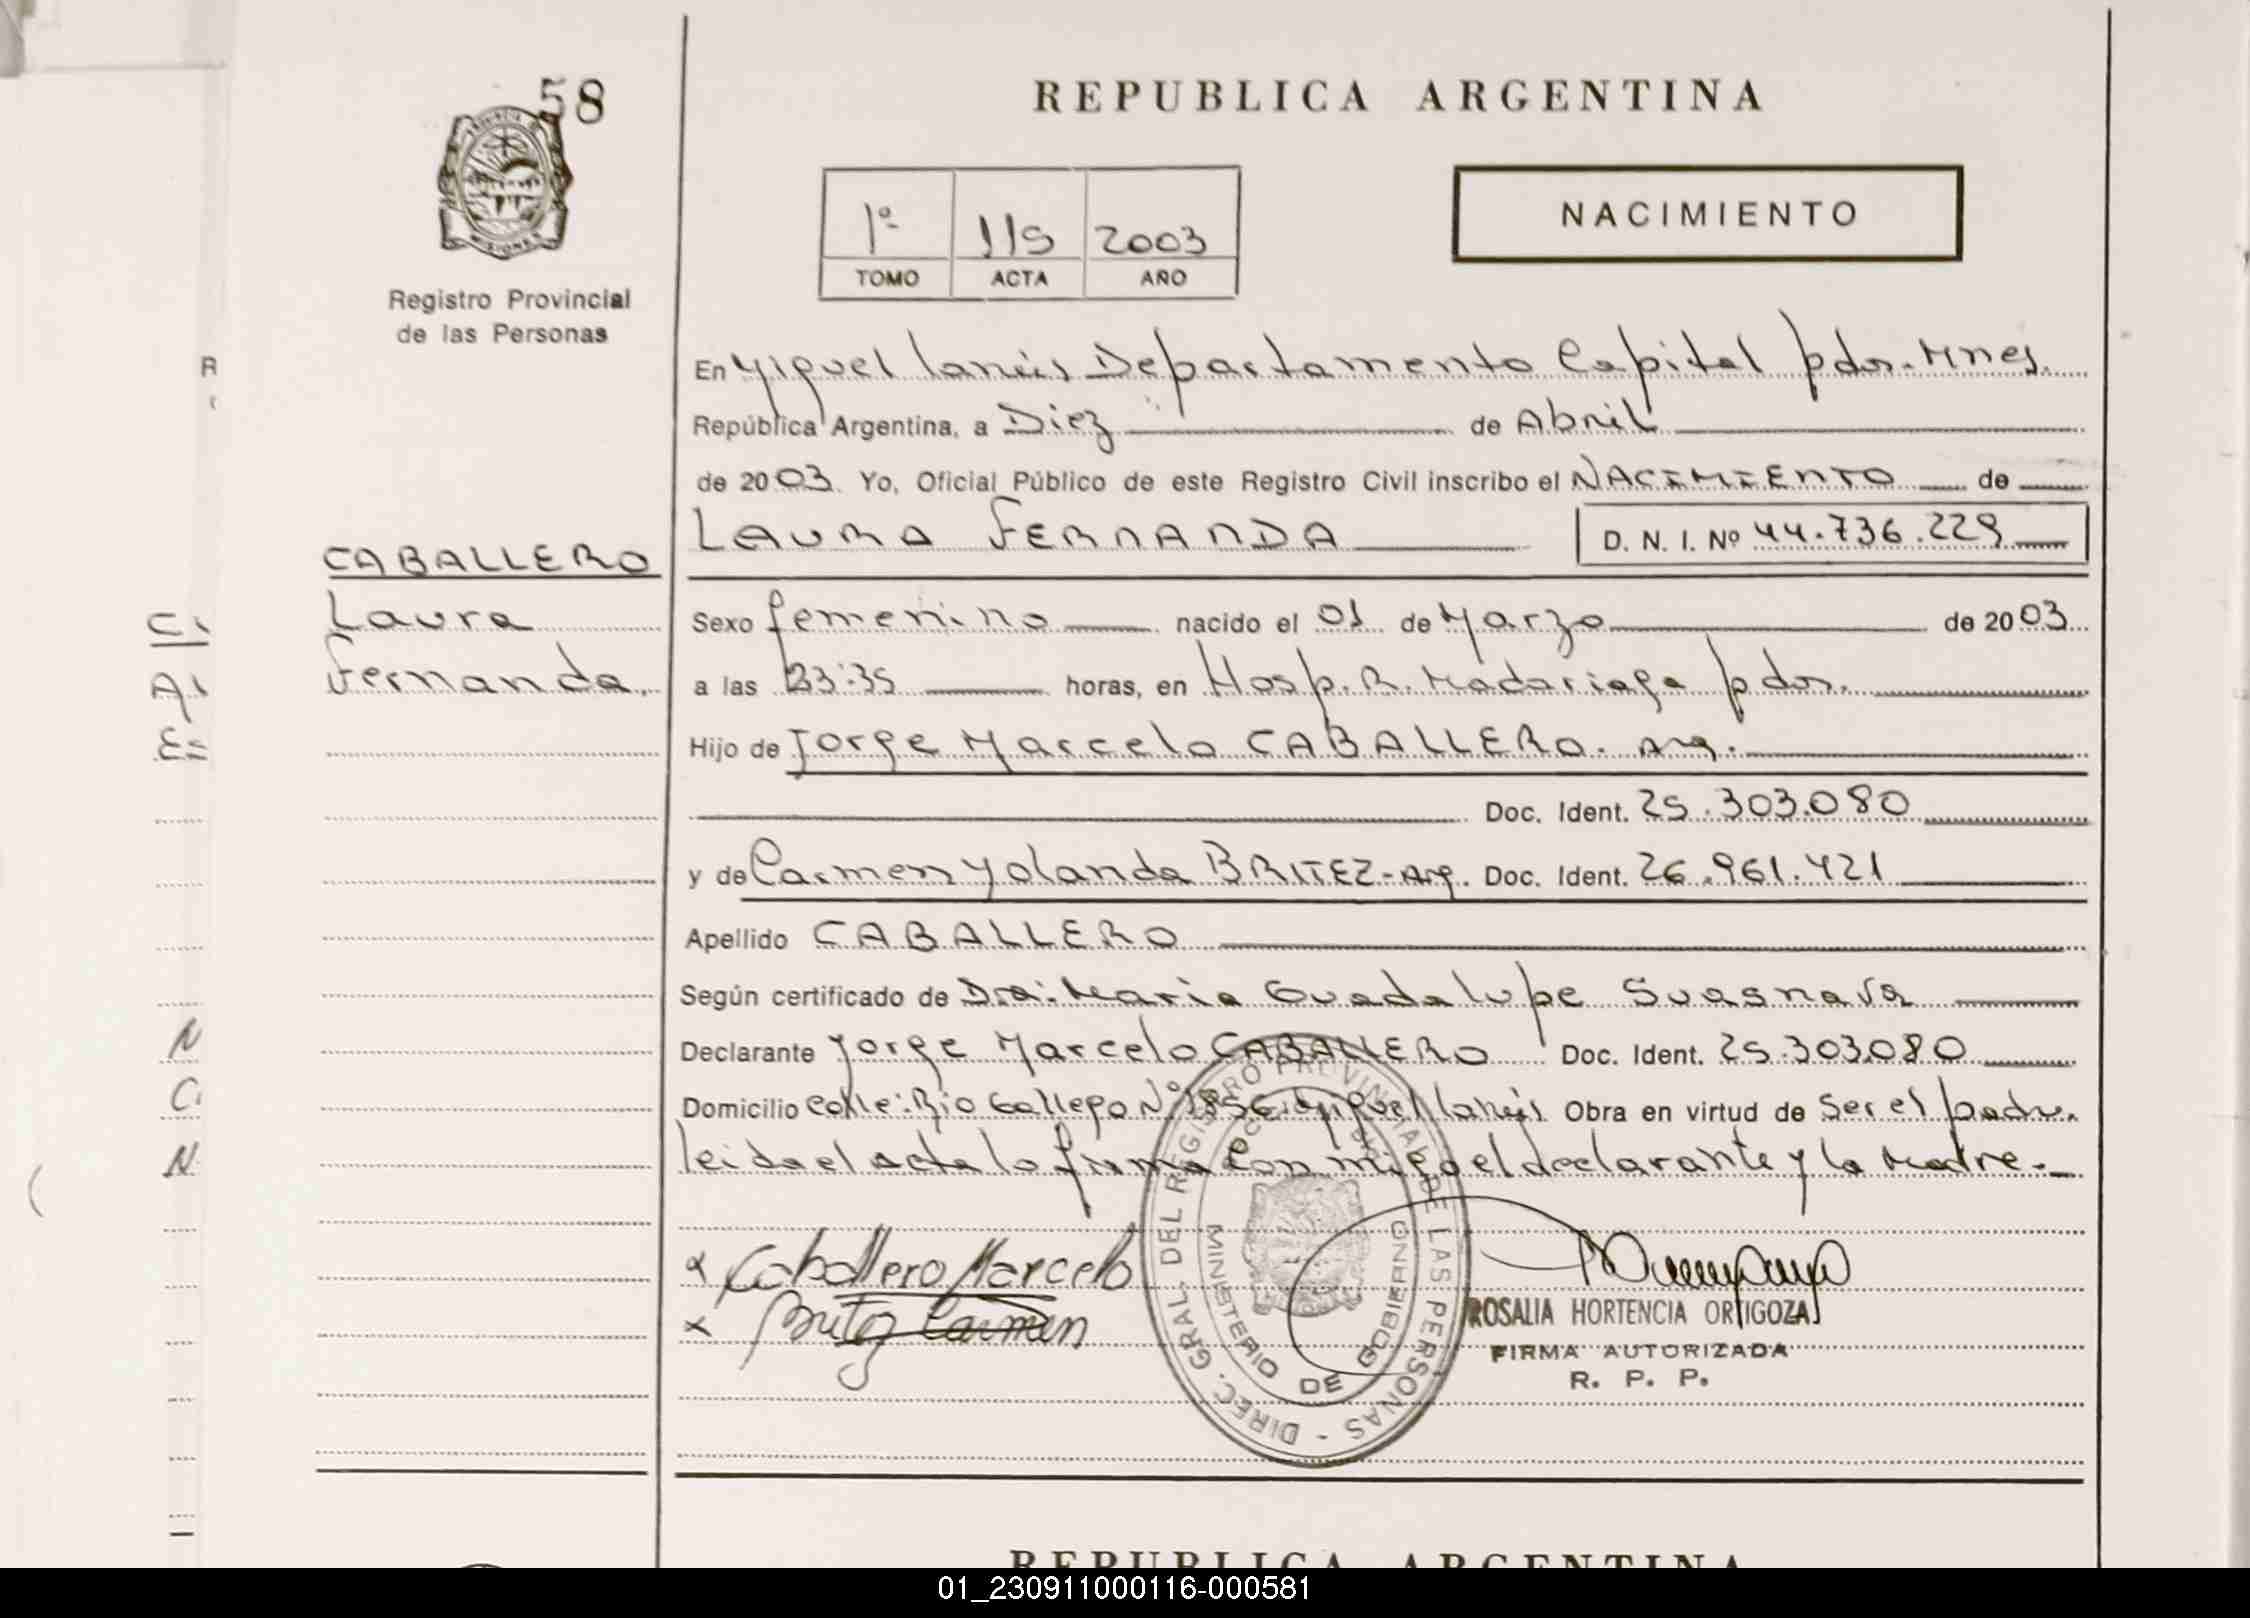 58
REPUBLICA ARGENTINA
1º 115 2003
TOMO ACTA AÑO
NACIMIENTO
MISIONES
Registro Provincial
de las Personas
En Miguel Lanús Departamento Capital pdas. Mnes.
República Argentina, a Diez de Abril
de 2003. Yo, Oficial Público de este Registro Civil inscribo el NACIMIENTO de
LAURA FERNANDA D. N. I. Nº 44.736.229
CABALLERO
Laura
Fernanda.
Sexo femenino nacido el 01 de Marzo de 2003
a las 23:35 horas, en Hosp. R. Madariaga pdas.
Hijo de Jorge Marcelo CABALLERO. Arg.
Doc. Ident. 25.303.080
y de Carmen Yolanda BRITEZ-Arg. Doc. Ident. 26.961.421
Apellido CABALLERO
Según certificado de Dra: Maria Guadalupe
Declarante Jorge Marcelo CABALLERO Doc. Ident. 25.303.080
Domicilio calle: Rio Gallego Nº 1856 Miguel Lanús Obra en virtud de ser el padre.
leida el acta la firma con migo el declarante y la Madre.
x Caballero Marcelo
x Britez Carmen
DIREC. GRAL. DEL REGISTRO PROVINCIAL DE LAS PERSONAS
MINISTERIO DE GOBIERNO
ROSALIA HORTENCIA ORTIGOZA
FIRMA AUTORIZADA
R. P. P.
REPUBLICA ARGENTINA
01_230911000116-000581